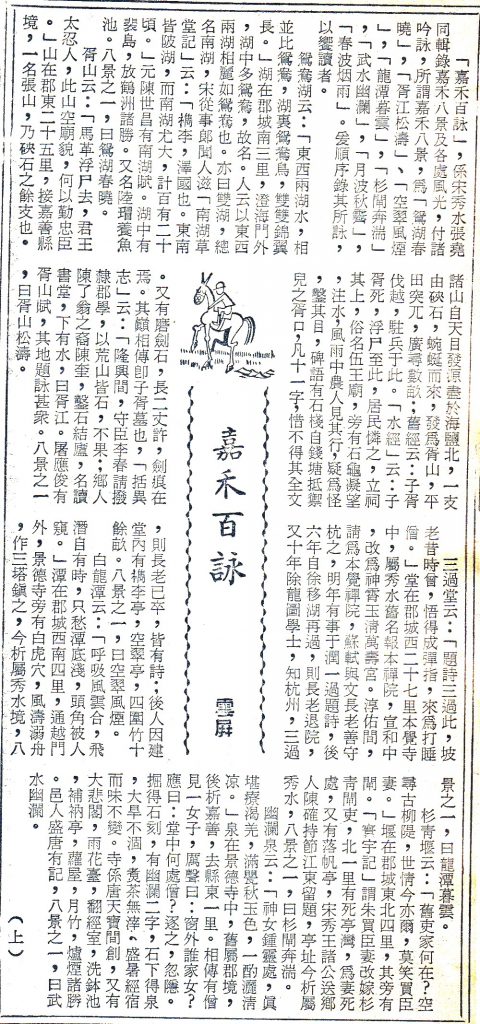 「嘉禾百詠」，係宋秀水張堯
同輯錄嘉禾八景及各處風光，付諸
吟詠，所謂嘉禾八景，為「鴛湖春
曉」，「胥江松濤」、「空翠風煙
」，「龍潭暮雲」，「杉閘奔湍」
，「武水幽瀾」，「月波秋霽」，
「春波烟雨」。爰順序錄其所詠，
以饗讀者。
鴛鴦湖云：「東西兩湖水，相
並比鴛鴦，湖裏鴛鴦鳥，雙雙錦翼
長。」湖在郡城南三里，澄海門外
，湖中多鴛鴦，故名。人云以東西
兩湖相麗如鴛鴦也。亦曰雙湖，總
名南湖，宋從事郎聞人滋「南湖草
堂記」云：「檇李，澤國也。東南
皆陂湖，而南湖尤大，計百有二十
頃。」元陳世昌有南湖賦。湖中有
裴島，放鶴洲諸勝。又名陸瑁養魚
池。八景之一，曰鴛湖春曉。
胥山云：「馬革浮尸去，君王
太忍人，此山空廟貌，何以勤忠臣
。」山在郡東二十五里，接嘉善縣
境，一名張山，乃硤石之餘支也。
諸山自天目發源盡於海鹽北，一支
由硤石，蜿蜒而來，發為胥山，平
田突兀，廣尋數畝；舊經云：子胥
伐越，駐兵于此。「水經」云：子
胥死，浮尸至此，居民憐之，立祠
其上，俗名伍王廟，旁有石龜凝望
，注水，風雨中農人見其行，疑為怪
，鑿其目，碑語有石棧自錢塘抵禦
兒之胥口，凡十一字，惜不得其全文
。又有磨劍石，長二丈許，劍痕在
焉。其巔相傳卽子胥墓也，「括異
志」云：「隆興間，守臣李春請撥
隸郡學，以荒山皆石，不果；鄉人
陳了翁之裔陳奎，鑿石結廬，名讀
書堂，下有水，曰胥江。屠應俊有
胥山賦，其地題詠甚衆。八景之一
，曰胥山松濤。
嘉禾百詠
雲屏
三過堂云：「題詩三過此，坡
老昔時曾，悟得成彈指，來為打睡
僧。」堂在郡城西二十七里本覺寺
中，屬秀水舊名報本禪院，宣和中
，改為神霄玉淸萬壽宮。淳佑間，
請為本覺禪院，蘇軾與文長老善守
杭之，明年有事于潤一過題詩，後
六年自徐移湖再過，則長老退院，
又十年除龍圖學士，知杭州，三過
，則長老已卒，皆有詩；後人因建
堂內有檇李亭，空翠亭，四圍竹十
餘畝。八景之一，曰空翠風煙。
白龍潭云：「呼吸風雲合，飛
潛自有時，只愁潭底淺，頭角被人
窺。」潭在郡城西南四里，通越門
外，景德寺旁有白虎穴，風濤溺舟
，作三塔鎭之，今析屬秀水境，八
景之一，曰龍潭暮雲。
杉靑堰云：「舊吏家何在？空
尋古柳隄，世情今亦爾，莫笑買臣
妻。」堰在郡城東北四里，其旁有
閘。「寰宇記」謂朱買臣妻改嫁杉
靑閘吏，北一里有死亭灣，為妻死
處，又有落帆亭，宋秀王諸公送鄉
人陳確持節江東留題，亭址今析屬
秀水，八景之一，曰杉閘奔湍。
幽瀾泉云：「神女鍾靈處，眞
堪療渴羌，滿甖秋玉色，一酌灑淸
涼。」泉在景德寺中，舊屬郡境，
後析嘉善，去縣東一里。相傳有僧
見一女子，厲聲曰：窗外誰家女？
應曰：堂中何處僧？逐之，忽隱。
掘得石刻，有幽瀾二字，石下得泉
，大旱不涸，羹茶無滓，盛暑經宿
而味不變。寺係唐天寶間創，又有
大悲閣，雨花臺，翻經室，洗鉢池
，補衲亭，蘿屋，月竹，爐烟諸勝
。邑人盛唐有記，八景之一，曰武
水幽瀾。
（上）